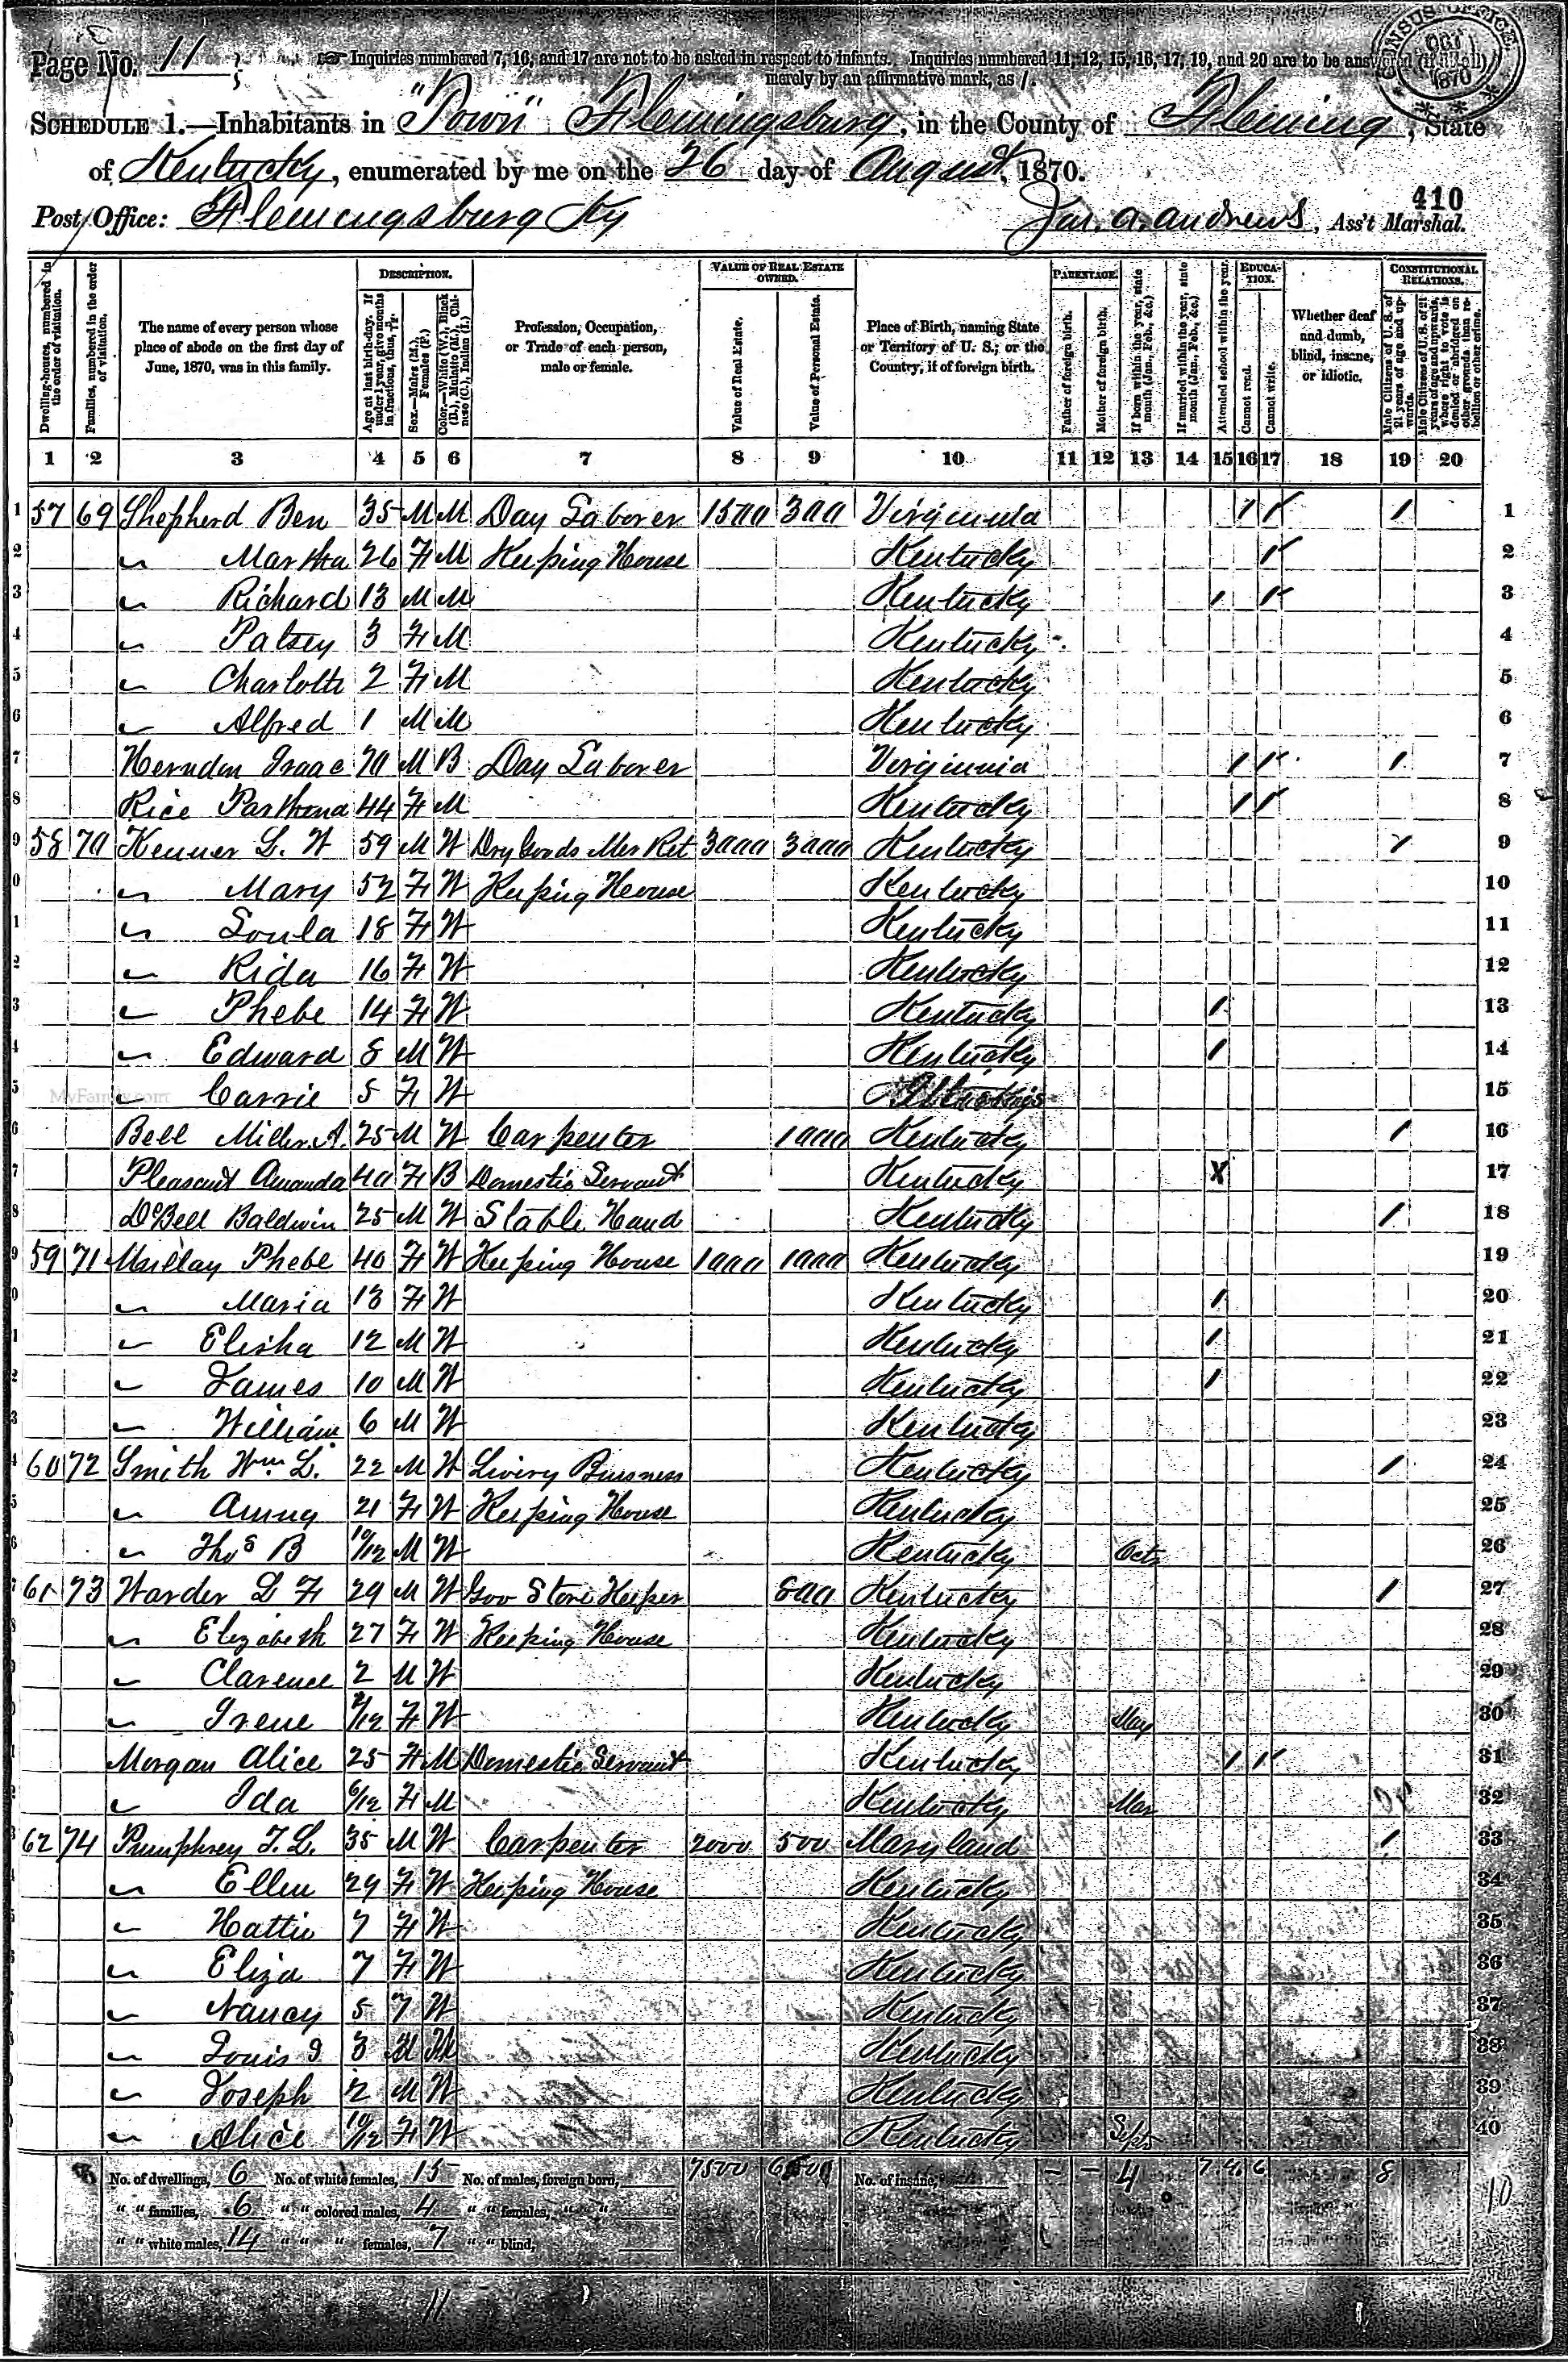 Page No. 11
Inquiries numbered 7, 16, and 17 are not to be asked in respect to infants. Inquiries numbered 11, 12, 15, 16, 17, 19, and 20 are to be answered (if at all)
merely by an affirmative mark, as /.
CENSUS OFFICE
OCT 1
1870
SCHEDULE 1.—Inhabitants in "Town" Flemingsburg, in the County of Fleming, State
of Kentucky, enumerated by me on the 26 day of August, 1870.
410
Post Office: Flemingsburg Ky
Jas. A. Andrews, Ass't Marshal.
DESCRIPTION. VALUE OF REAL ESTATE OWNED. PARENTAGE. EDUCATION. CONSTITUTIONAL RELATIONS.
Dwelling-houses, numbered in the order of visitation.
Families, numbered in the order of visitation.
The name of every person whose place of abode on the first day of June, 1870, was in this family.
Age at last birth-day. If under 1 year, give months in fractions, thus,
Sex.—Males (M.), Females (F.)
Color.—White (W.), Black (B.), Mulatto (M.), Chinese (C.), Indian (I.)
Profession, Occupation, or Trade of each person, male or female.
Value of Real Estate.
Value of Personal Estate.
Place of Birth, naming State or Territory of U. S.; or the Country, if of foreign birth.
Father of foreign birth.
Mother of foreign birth.
If born within the year, state month (Jan., Feb., &c.)
If married within the year, state month (Jan., Feb., &c.)
Attended school within the year.
Cannot read.
Cannot write.
Whether deaf and dumb, blind, insane, or idiotic.
Male Citizens of U. S. of 21 years of age and upwards.
Male Citizens of U. S. of 21 years of age and upwards, where right to vote is denied or abridged on other grounds than rebellion or other crime.
1 2 3 4 5 6 7 8 9 10 11 12 13 14 15 16 17 18 19 20
1 57 69 Shepherd Ben 35 M M Day Laborer 1500 300 Virginia / / / 1
2 " Martha 26 F M Keeping House Kentucky / 2
3 " Richard 13 M M Kentucky / / 3
4 " Patsey 3 F M Kentucky 4
5 " Charlotte 2 F M Kentucky 5
6 " Alfred 1 M M Kentucky 6
7 Herndon Isaac 70 M B Day Laborer Virginia / / / 7
8 Rice Parthena 44 F M Kentucky / / 8
9 58 70 Kenner L. W 59 M W Dry Goods Mer Ret 3000 3000 Kentucky / 9
" Mary 52 F W Keeping House Kentucky 10
" Loula 18 F W Kentucky 11
" Rida 16 F W Kentucky 12
" Phebe 14 F W Kentucky / 13
" Edward 8 M W Kentucky / 14
MyFamily.com
" Carrie 5 F W 15
Bell Miller A. 25 M W Carpenter 1000 Kentucky / 16
Pleasant Amanda 40 F B Domestic Servant Kentucky X 17
DeBell Baldwin 25 M W Stable Hand Kentucky / 18
59 71 Phebe 40 F W Keeping House 1000 1000 Kentucky 19
" Maria 13 F W Kentucky / 20
" Elisha 12 M W Kentucky / 21
" James 10 M W Kentucky / 22
" William 6 M W Kentucky 23
60 72 Smith Wm L. 22 M W Livery Buisness Kentucky / 24
" 21 F W Keeping House Kentucky 25
" Thos B 10/12 M W Kentucky Oct 26
61 73 Warder L F 29 M W Gov Store Keeper Kentucky / 27
" Elizabeth 27 F W Keeping House Kentucky 28
" Clarence 2 M W Kentucky 29
" Irene /12 F W Kentucky May 30
Morgan Alice 25 F M Domestic Servant Kentucky / / 31
" Ida 6/12 F M Kentucky Mar 32
62 74 Pumphrey J. L. 35 M W Carpenter 2000 500 Maryland / 33
" Ellen 29 F W Keeping House Kentucky 34
" Hattie 7 F W Kentucky 35
" Eliza 7 F W Kentucky 36
" Nancy 5 F W Kentucky 37
" Louis 3 M W Kentucky 38
" Joseph 2 M W Kentucky 39
" Alice 10/12 F W Kentucky Sept 40
No. of dwellings, 6 No. of white females, 15 No. of males, foreign born, 7500 No. of insane, 4 7 4 6 8 10
" " families, 6 " " colored males, 4 " " females, " "
" " white males, 14 " " " females, 7 " " blind,
11